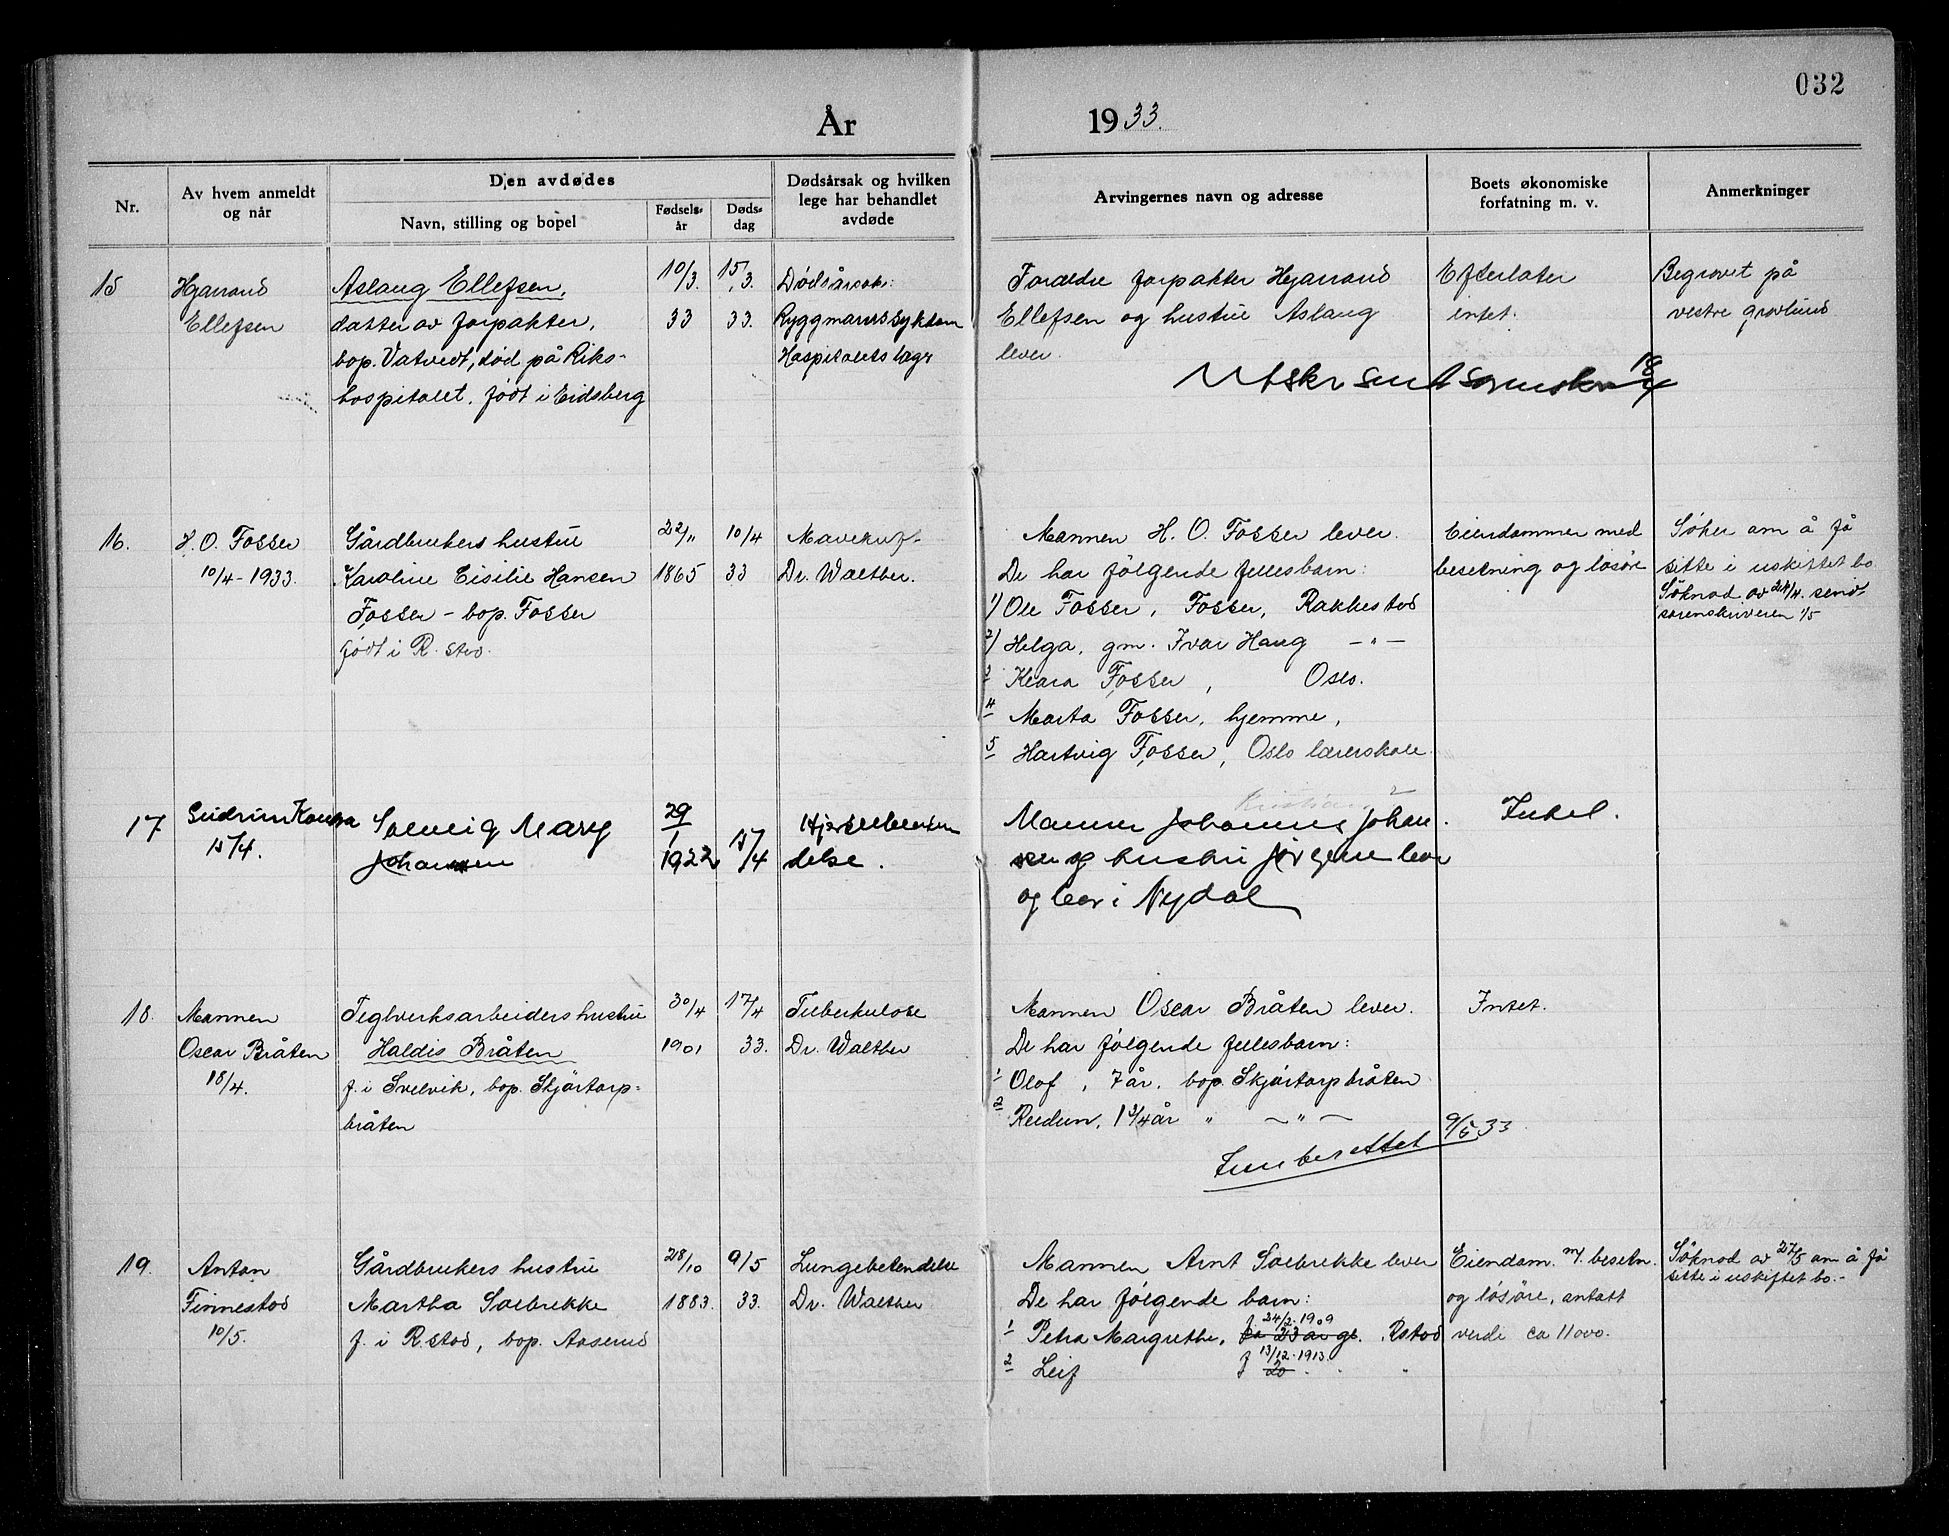 032
År 1933.
Nr.
Av hvem anmeldt
og når
Den avdødes
Navn, stilling og bopel
Fødsels-
år
Døds-
dag
Dødsårsak og hvilken
lege har behandlet
avdøde
Arvingernes navn og adresse
Boets økonomiske
forfatning m. v.
Anmerkninger
15
Hjarrand
Ellefsen
Aslaug Ellefsen,
datter av forpakter,
bop. Vatvedt, død på Riks-
hospitalet, født i Eidsberg
10/3.
33
15/3.
33.
Dødsårsak:
Ryggmarvssykdom
Hospitalets læge
Foreldre forpakter Hjarrand
Ellefsen og hustru Aslaug
lever.
Utskr sendt sorenskr 18/4
Efterlater
intet.
Begravet på
vestre gravlund
16.
H. O. Fosser
10/4 - 1933.
Gårdbrukers hustru
Karoline Eisilie Hansen
Fosser - bop. Fosser
født i R. stad.
22/11
1865
10/4
33
Mavekreft
Dr. Walther.
Mannen H. O. Fosser lever.
De har følgende fellesbarn:
1) Ole Fosser, Fosser, Rakkestad
2) Helga, gm. Ivar Haug - " -
3 Klara Fosser, Oslo.
4 Marta Fosser, hjemme,
5 Hartvig Fosser, Oslo lærerskole.
Eiendommer med
besetning og løsøre
Søker om å få
sitte i uskiftet bo
Søknad av 24/4. sendt
sorenskriveren 1/5
17
Gudrun
15/4.
Solveig Mary
Johansen
29
1
1922
15/4
Hjernehinnebeten
delse.
Johannes Johan
sen og hustru Jørgine lever
og bor i Nydal
Intet.
18.
Mannen
Oscar Bråten
18/4.
Teglverksarbeiders hustru
Haldis Bråten
f. i Svelvik, bop. Skjørtorp-
bråten
30/4
1901
17/4
33.
Tuberkulose
Dr. Walther
Mannen Oscar Bråten lever.
De har følgende fellesbarn:
1 Olof, 7 år, bop. Skjørtorpbråten
2 Reidun, 1 3/4 år " - " -
Innberettet 9/5 33
Intet.
19.
Anton
Finnestad
10/5.
Gårdbrukers hustru
Martha Solbrekke
f. i R.stad, bop. Aaserud
28/10
1883.
9/5
33.
Lungebetendelse
Dr. Walther
Mannen Arnt Solbrekke lever
De har følgende barn:
f 24/2-1909
1 Petra Margrethe, ca 23 år gl. Rstad
f 13/12-1913.
2 Leif 20 " "
Eiendom m/. besetn.
og løsøre, antatt
verdi ca 11000.
Søknad av 27/5 om å få
sitte i uskiftet bo.-